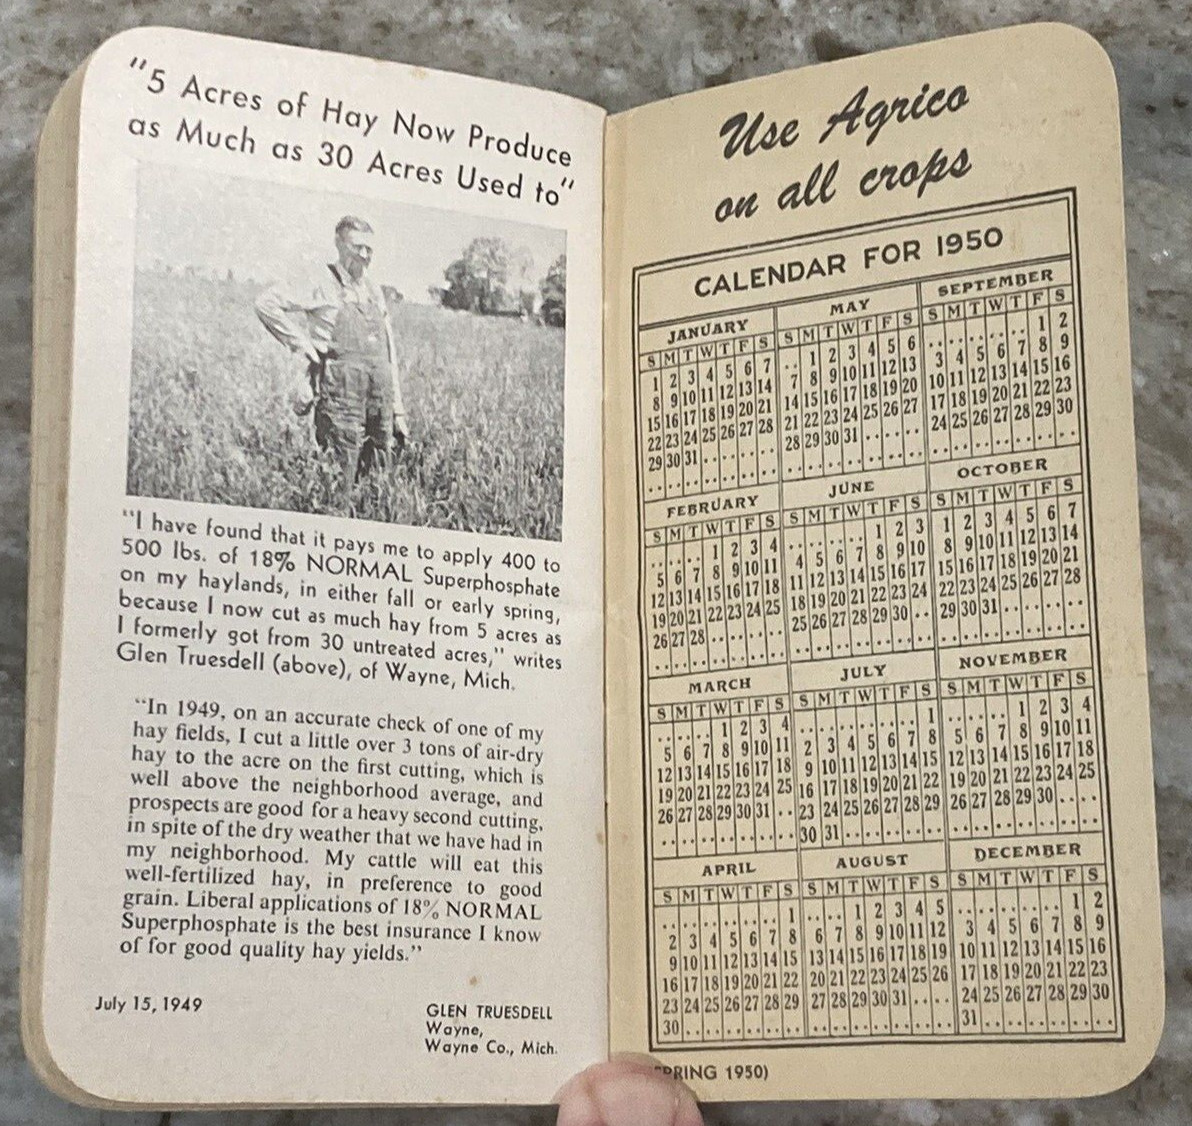 "5 Acres of Hay Now Produce
as Much as 30 Acres Used to"
"I have found that it pays me to apply 400 to
500 lbs. of 18% NORMAL Superphosphate
on my haylands, in either fall or early spring,
because I now cut as much hay from 5 acres as
I formerly got from 30 untreated acres," writes
Glen Truesdell (above), of Wayne, Mich.
"In 1949, on an accurate check of one of my
hay fields, I cut a little over 3 tons of air-dry
hay to the acre on the first cutting, which is
well above the neighborhood average, and
prospects are good for a heavy second cutting,
in spite of the dry weather that we have had in
my neighborhood. My cattle will eat this
well-fertilized hay, in preference to good
grain. Liberal applications of 18% NORMAL
Superphosphate is the best insurance I know
of for good quality hay yields."
July 15, 1949
GLEN TRUESDELL
Wayne,
Wayne Co., Mich.
Use Agrico
on all crops
CALENDAR FOR 1950
JANUARY
S M T W T F S
1 2 3 4 5 6 7
8 9 10 11 12 13 14
15 16 17 18 19 20 21
22 23 24 25 26 27 28
29 30 31
FEBRUARY
S M T W T F S
1 2 3 4
5 6 7 8 9 10 11
12 13 14 15 16 17 18
19 20 21 22 23 24 25
26 27 28
MARCH
S M T W T F S
1 2 3 4
5 6 7 8 9 10 11
12 13 14 15 16 17 18
19 20 21 22 23 24 25
26 27 28 29 30 31
APRIL
S M T W T F S
1
2 3 4 5 6 7 8
9 10 11 12 13 14 15
16 17 18 19 20 21 22
23 24 25 26 27 28 29
30
MAY
S M T W T F S
1 2 3 4 5 6
7 8 9 10 11 12 13
14 15 16 17 18 19 20
21 22 23 24 25 26 27
28 29 30 31
JUNE
S M T W T F S
1 2 3
4 5 6 7 8 9 10
11 12 13 14 15 16 17
18 19 20 21 22 23 24
25 26 27 28 29 30
JULY
S M T W T F S
1
2 3 4 5 6 7 8
9 10 11 12 13 14 15
16 17 18 19 20 21 22
23 24 25 26 27 28 29
30 31
AUGUST
S M T W T F S
1 2 3 4 5
6 7 8 9 10 11 12
13 14 15 16 17 18 19
20 21 22 23 24 25 26
27 28 29 30 31
SEPTEMBER
S M T W T F S
1 2
3 4 5 6 7 8 9
10 11 12 13 14 15 16
17 18 19 20 21 22 23
24 25 26 27 28 29 30
OCTOBER
S M T W T F S
1 2 3 4 5 6 7
8 9 10 11 12 13 14
15 16 17 18 19 20 21
22 23 24 25 26 27 28
29 30 31
NOVEMBER
S M T W T F S
1 2 3 4
5 6 7 8 9 10 11
12 13 14 15 16 17 18
19 20 21 22 23 24 25
26 27 28 29 30
DECEMBER
S M T W T F S
1 2
3 4 5 6 7 8 9
10 11 12 13 14 15 16
17 18 19 20 21 22 23
24 25 26 27 28 29 30
31
PRING 1950)